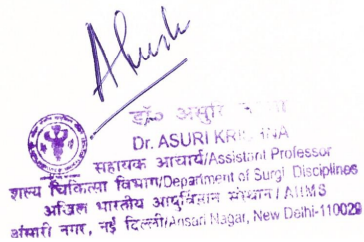 डॉ० असुरि
Dr. ASURI KRISHNA
सहायक आचार्य/Assistant Professor
शल्य चिकित्सा विभाग/Department of Surgi Disciplines
अखिल भारतीय आयुर्विज्ञान संस्थान / AIIMS
अंसारी नगर, नई दिल्ली/Ansari Nagar, New Delhi-110029